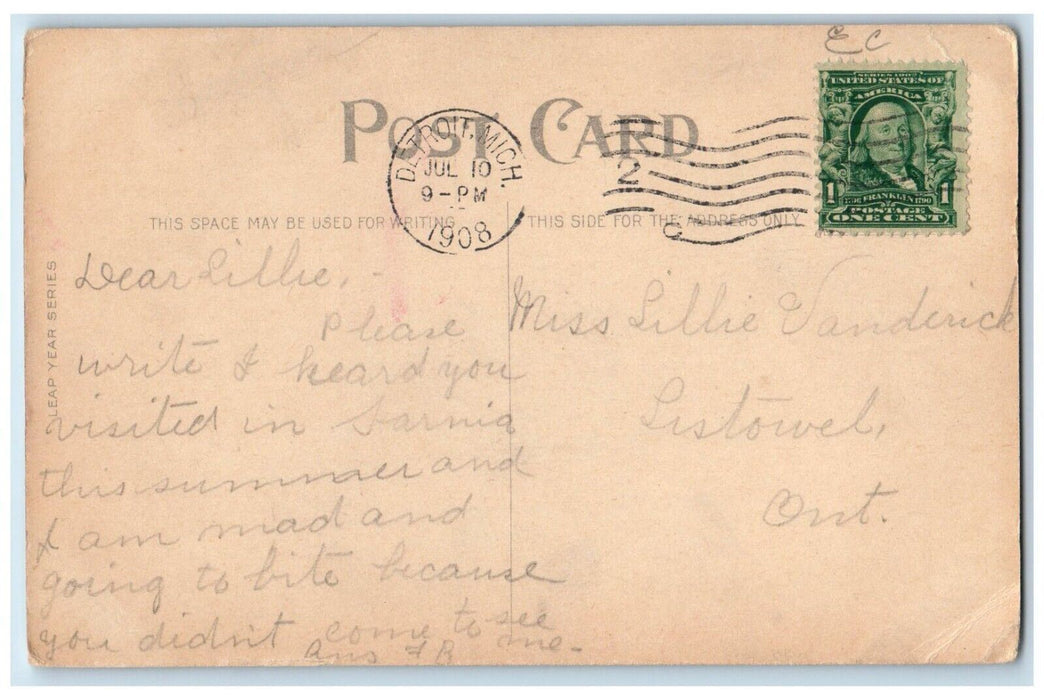 EC
POST CARD
DETROIT, MICH.
JUL 10
9-PM
1908
2
C
SERIES 1902
UNITED STATES OF
AMERICA
1 1
1706 FRANKLIN 1790
POSTAGE
ONE CENT
THIS SPACE MAY BE USED FOR WRITING
THIS SIDE FOR THE ADDRESS ONLY
LEAP YEAR SERIES
Dear Lillie, -
Please
write I heard you
visited in Sarnia
this summer and
I am mad and
going to bite because
you didn't come to see
me-
Ans F B
Miss Lillie Vanderick
Listowel,
Ont.